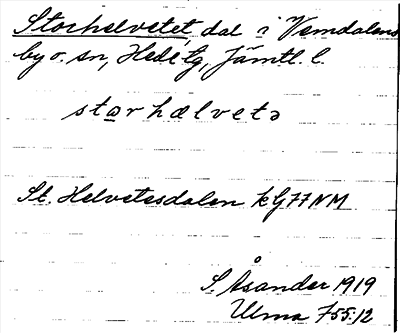 Storhelvetet, dal i Vemdalens
by o. sn, Hede tg, Jämtl. l.
starhælvetə
St. Helvetesdalen kG77NM
S. Åsander 1919
Ulma 755:12